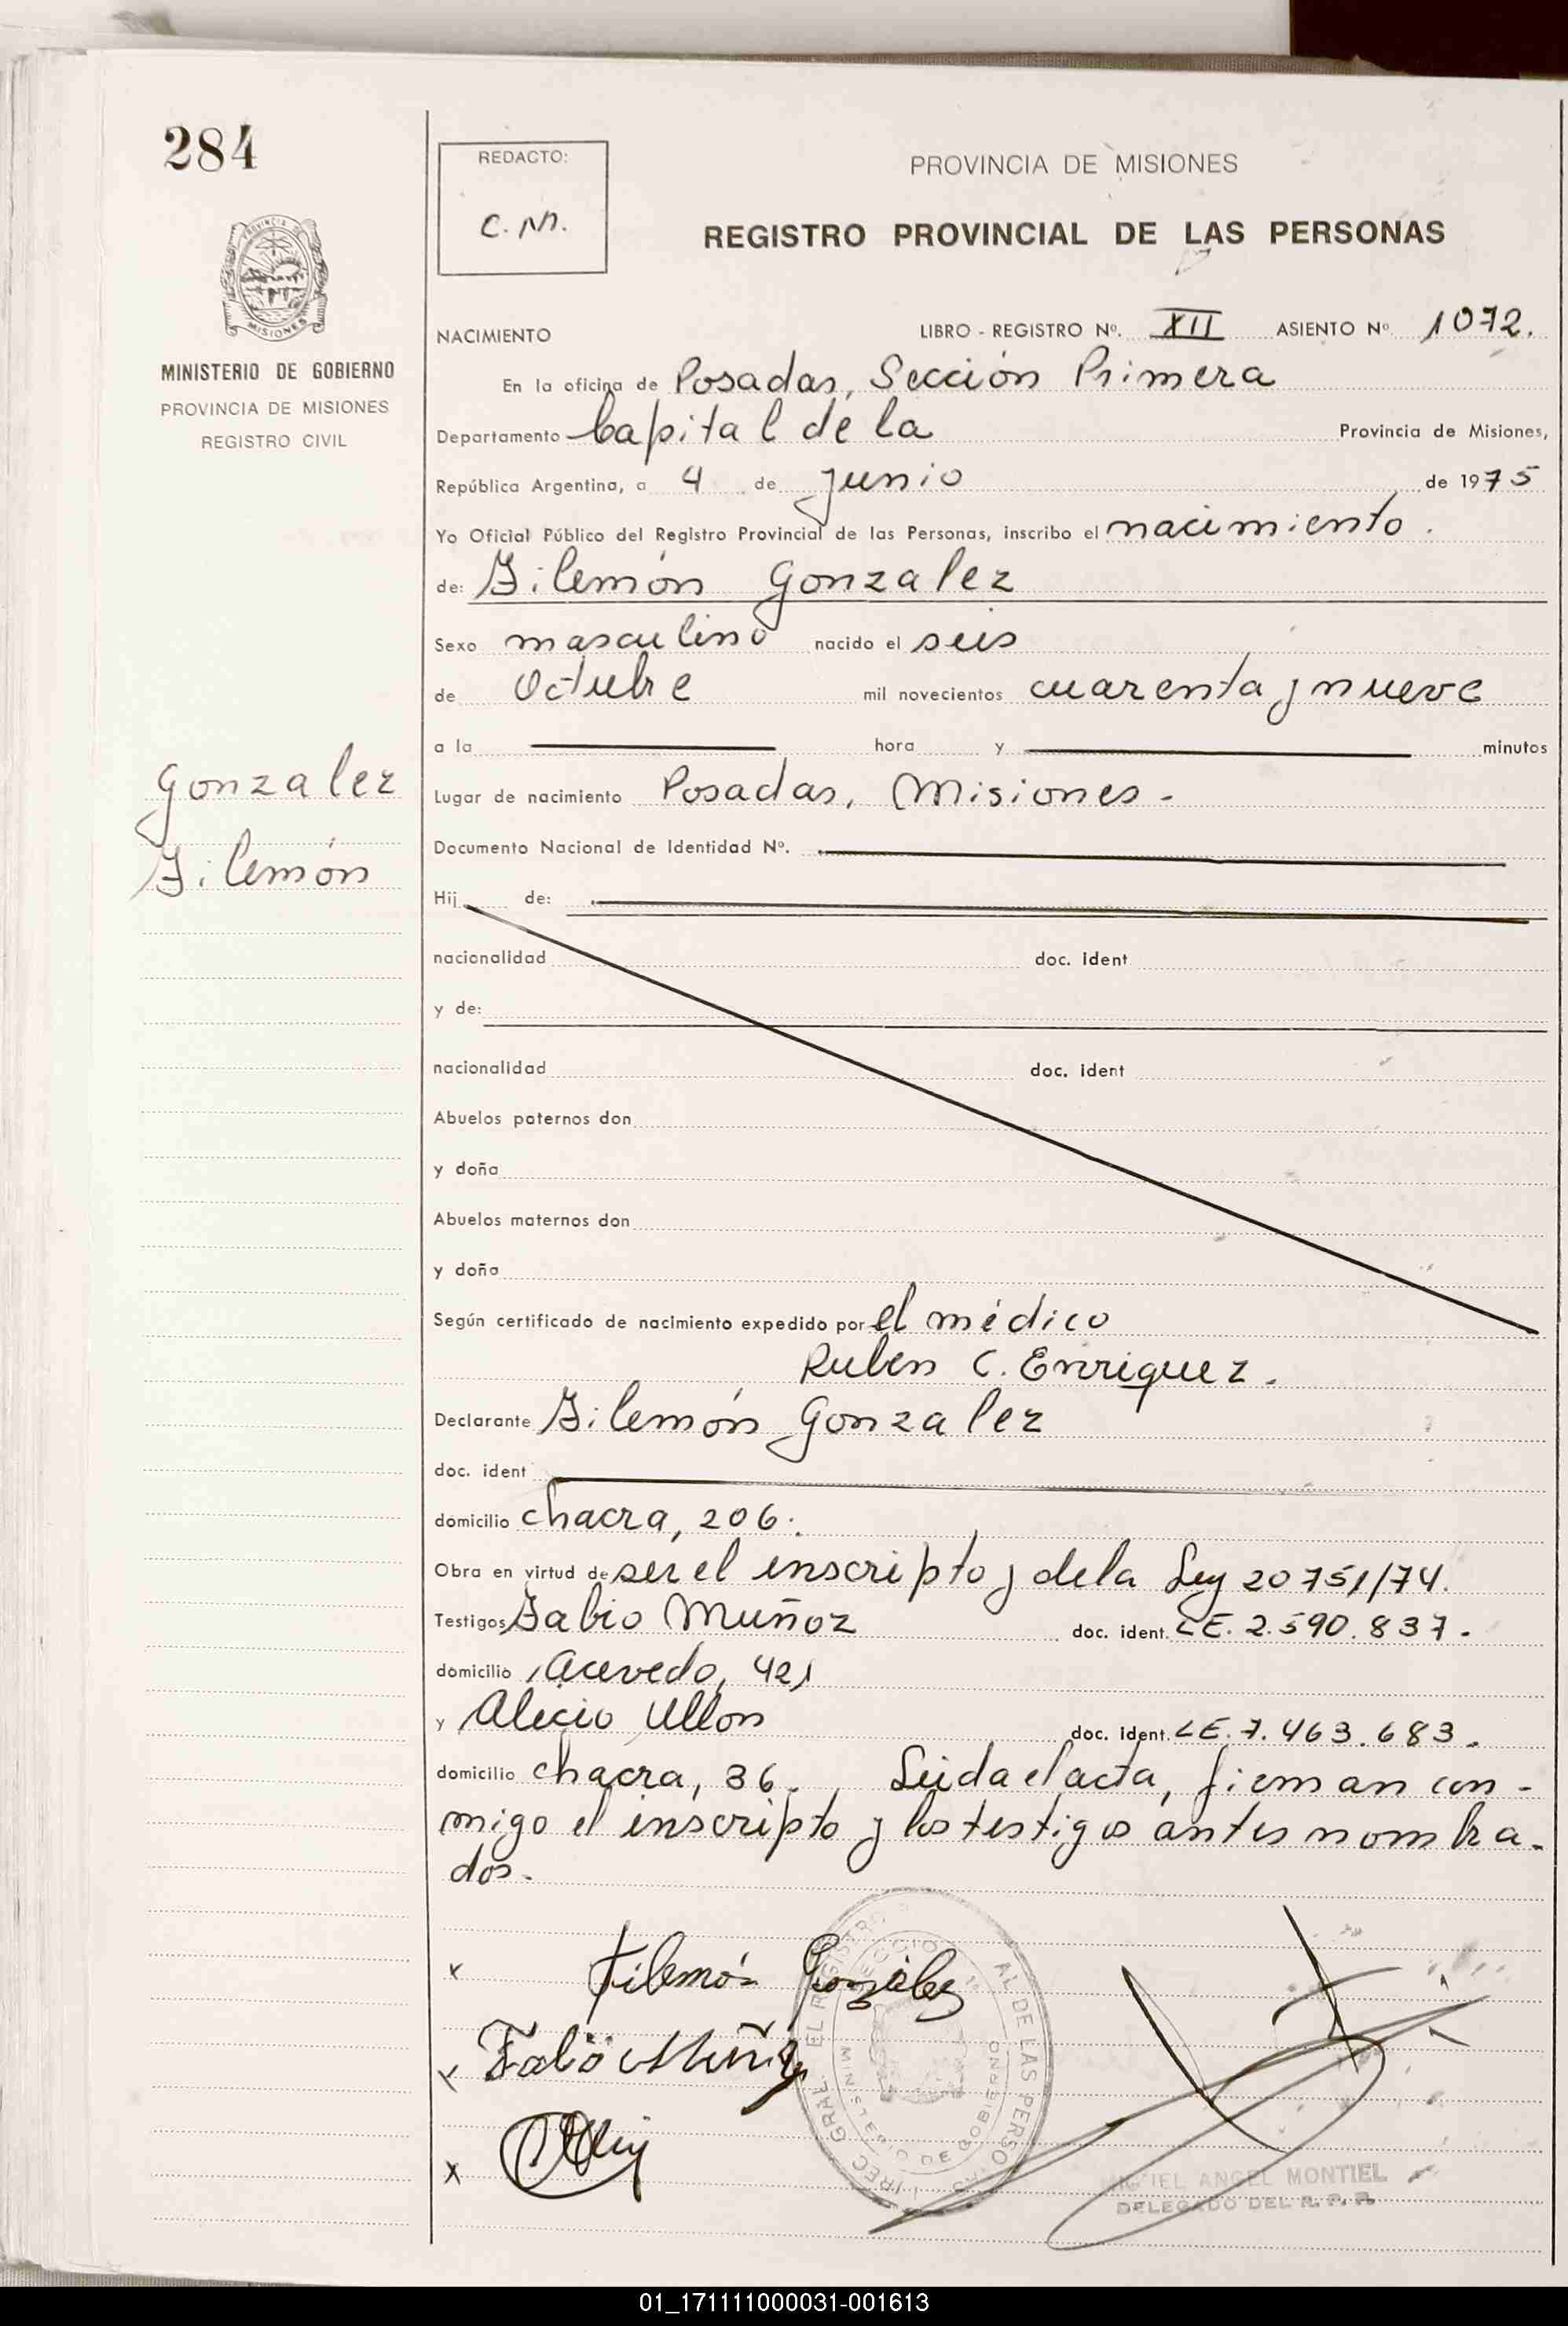 284
REDACTO:
C. M.
PROVINCIA DE MISIONES
REGISTRO PROVINCIAL DE LAS PERSONAS
PROVINCIA DE
MISIONES
MINISTERIO DE GOBIERNO
PROVINCIA DE MISIONES
REGISTRO CIVIL
NACIMIENTO LIBRO - REGISTRO Nº. XII ASIENTO Nº 1072.
En la oficina de Posadas, Sección Primera
Departamento Capital de la Provincia de Misiones,
República Argentina, a 4 de Junio de 1975
Yo Oficial Público del Registro Provincial de las Personas, inscribo el nacimiento.
de: Filemón Gonzalez
Sexo masculino nacido el seis
de Octubre mil novecientos cuarenta y nueve
a la hora y minutos
Gonzalez
Filemón
Lugar de nacimiento Posadas, Misiones.-
Documento Nacional de Identidad Nº.
Hij de:
nacionalidad doc. ident
y de:
nacionalidad doc. ident
Abuelos paternos don
y doña
Abuelos maternos don
y doña
Según certificado de nacimiento expedido por el médico
Ruben C. Enriquez.
Declarante Filemón Gonzalez
doc. ident
domicilio chacra, 206.
Obra en virtud de ser el inscripto y de la Ley 20751/74.
Testigos Fabio Muñoz doc. ident. LE. 2.590.837.
domicilio Acevedo, 421
y Alecio Ullon doc. ident. LE. 7.463.683.
domicilio chacra, 36. Leida el acta, firman con-
migo el inscripto y los testigos antes nombra-
dos.-
x Filemón González
x Fabio Muñoz
x
DIREC. GRAL. EL REGISTRO AL DE LAS PERSO
MINISTERIO DE GOBIERNO
MIGUEL ANGEL MONTIEL
DELEGADO DEL R. P. P.
01_171111000031-001613